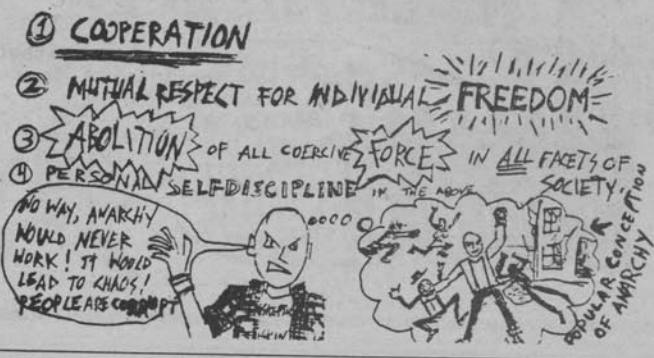 ① COOPERATION
② MUTUAL RESPECT FOR INDIVIDUAL FREEDOM
③ ABOLITION OF ALL COERCIVE FORCE IN ALL FACETS OF SOCIETY.
④ PERSONAL SELF DISCIPLINE IN THE ABOVE
NO WAY, ANARCHY
WOULD NEVER
WORK! IT WOULD
LEAD TO CHAOS!
PEOPLE ARE CORRUPT
POPULAR CONCEPTION
OF ANARCHY